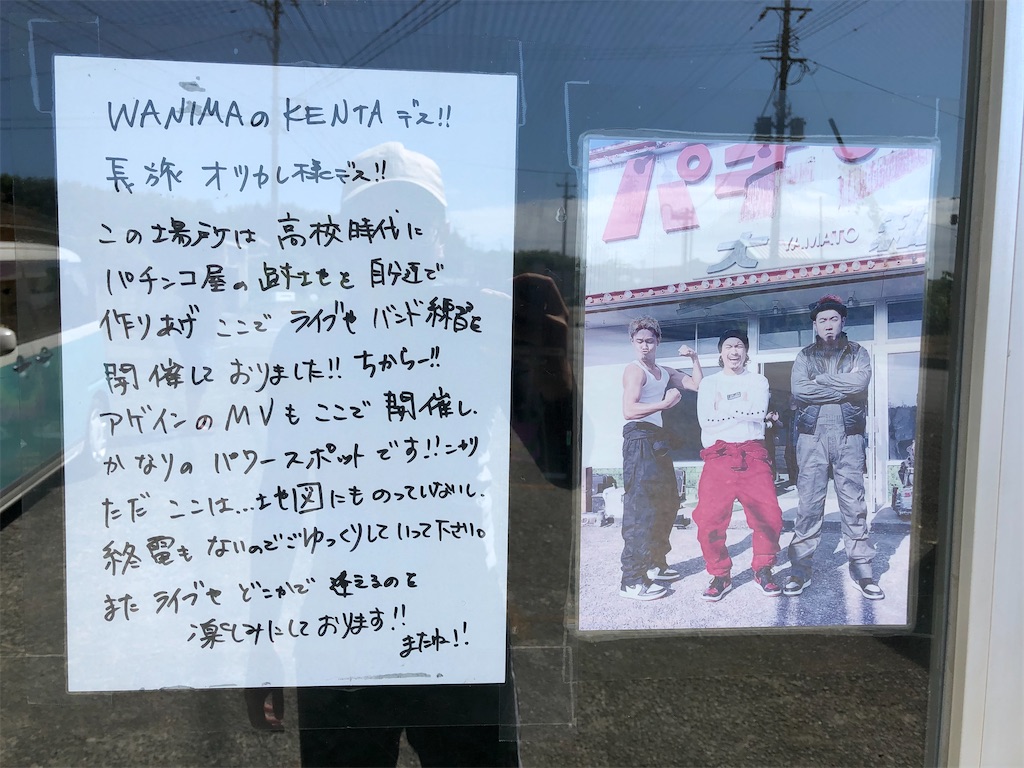 WANIMAの KENTA デス!!
長旅 オツカレ様デス!!
この場所は 高校時代に
パチンコ屋の 跡地を 自分達で
作りあげ ここで ライブや バンド練習を
開催して おりました!! ちからー!!
アゲインの MVも ここで 開催し、
かなりの パワースポットです!! ニヤリ
ただ ここは...地図にものっていないし、
終電も ないのでごゆっくりしていって下さい。
また ライブや どこかで 逢えるのを
楽しみにしております!!
またね!!
パチ
YAMATO
大